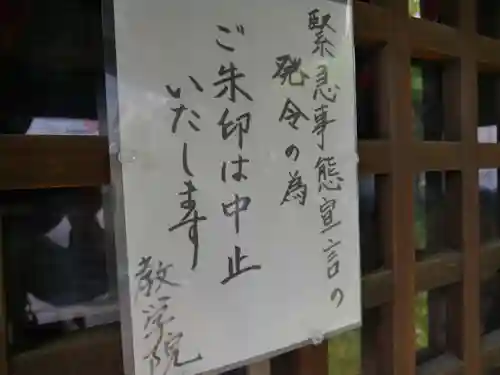 緊急事態宣言の
発令の為
ご朱印は中止
いたします
教学院